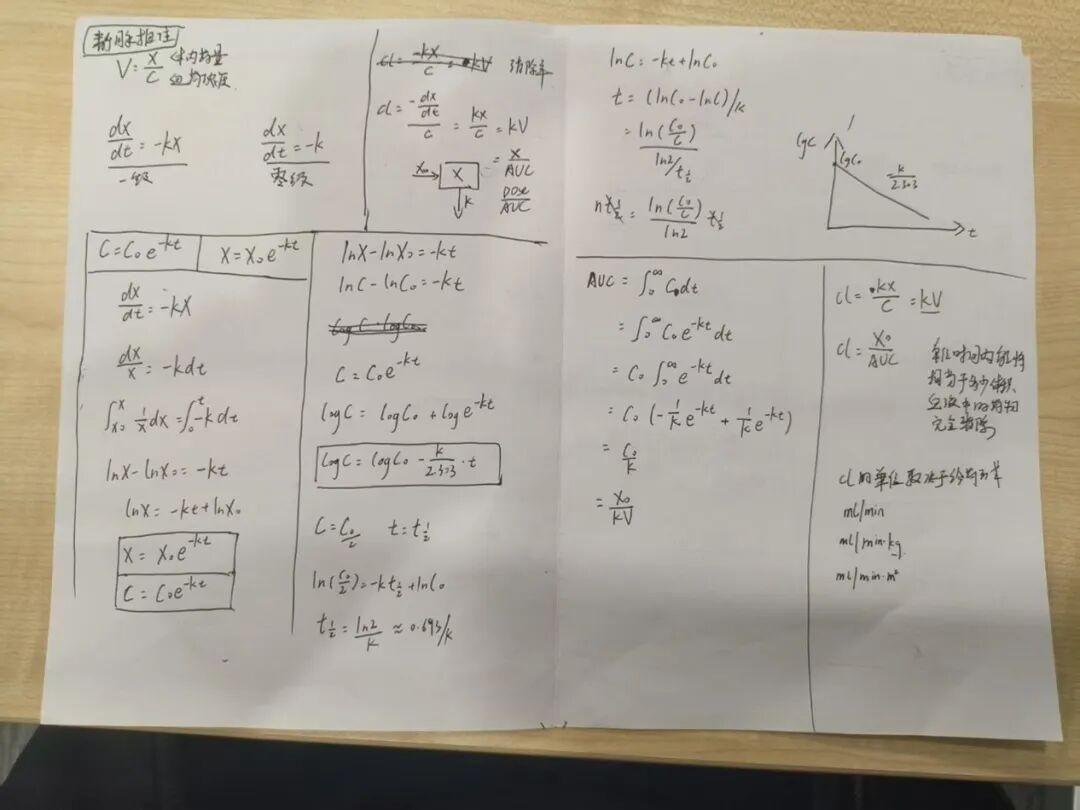 静脉推注
V = X/C 体内药量
血药浓度
dx/dt = -kX
一级
dx/dt = -k
零级
Cl = -kX/C = kV 清除率
Cl = (-dx/dt)/C = kX/C = kV
= X/AUC
X₀ → X
k
Dose/AUC
C = C₀e^-kt
X = X₀e^-kt
dx/dt = -kX
dx/x = -kdt
∫_{X₀}^{X} 1/x dx = ∫_0^t -k dt
lnX - lnX₀ = -kt
lnX = -kt + lnX₀
X = X₀e^-kt
C = C₀e^-kt
lnX - lnX₀ = -kt
lnC - lnC₀ = -kt
C = C₀e^-kt
logC = logC₀ + loge^-kt
logC = logC₀ - k/2.303 · t
C = C₀/2 t = t½
ln(C₀/2) = -kt½ + lnC₀
t½ = ln2/k ≈ 0.693/k
lnC = -kt + lnC₀
t = (lnC₀ - lnC)/k
= ln(C₀/C) / (ln2/t½)
nt½ = ln(C₀/C)/ln2 t½
lgC
lgC₀
k/2.303
t
AUC = ∫_0^∞ C dt
= ∫_0^∞ C₀e^-kt dt
= C₀ ∫_0^∞ e^-kt dt
= C₀(-1/k e^-kt + 1/k e^-kt)
= C₀/k
= X₀/kV
Cl = kX/C = kV
Cl = X₀/AUC
单位时间内
相当于多少体积
血液中的药物
完全清除
Cl的单位取决于给药方案
ml/min
ml/min·kg
ml/min·m²